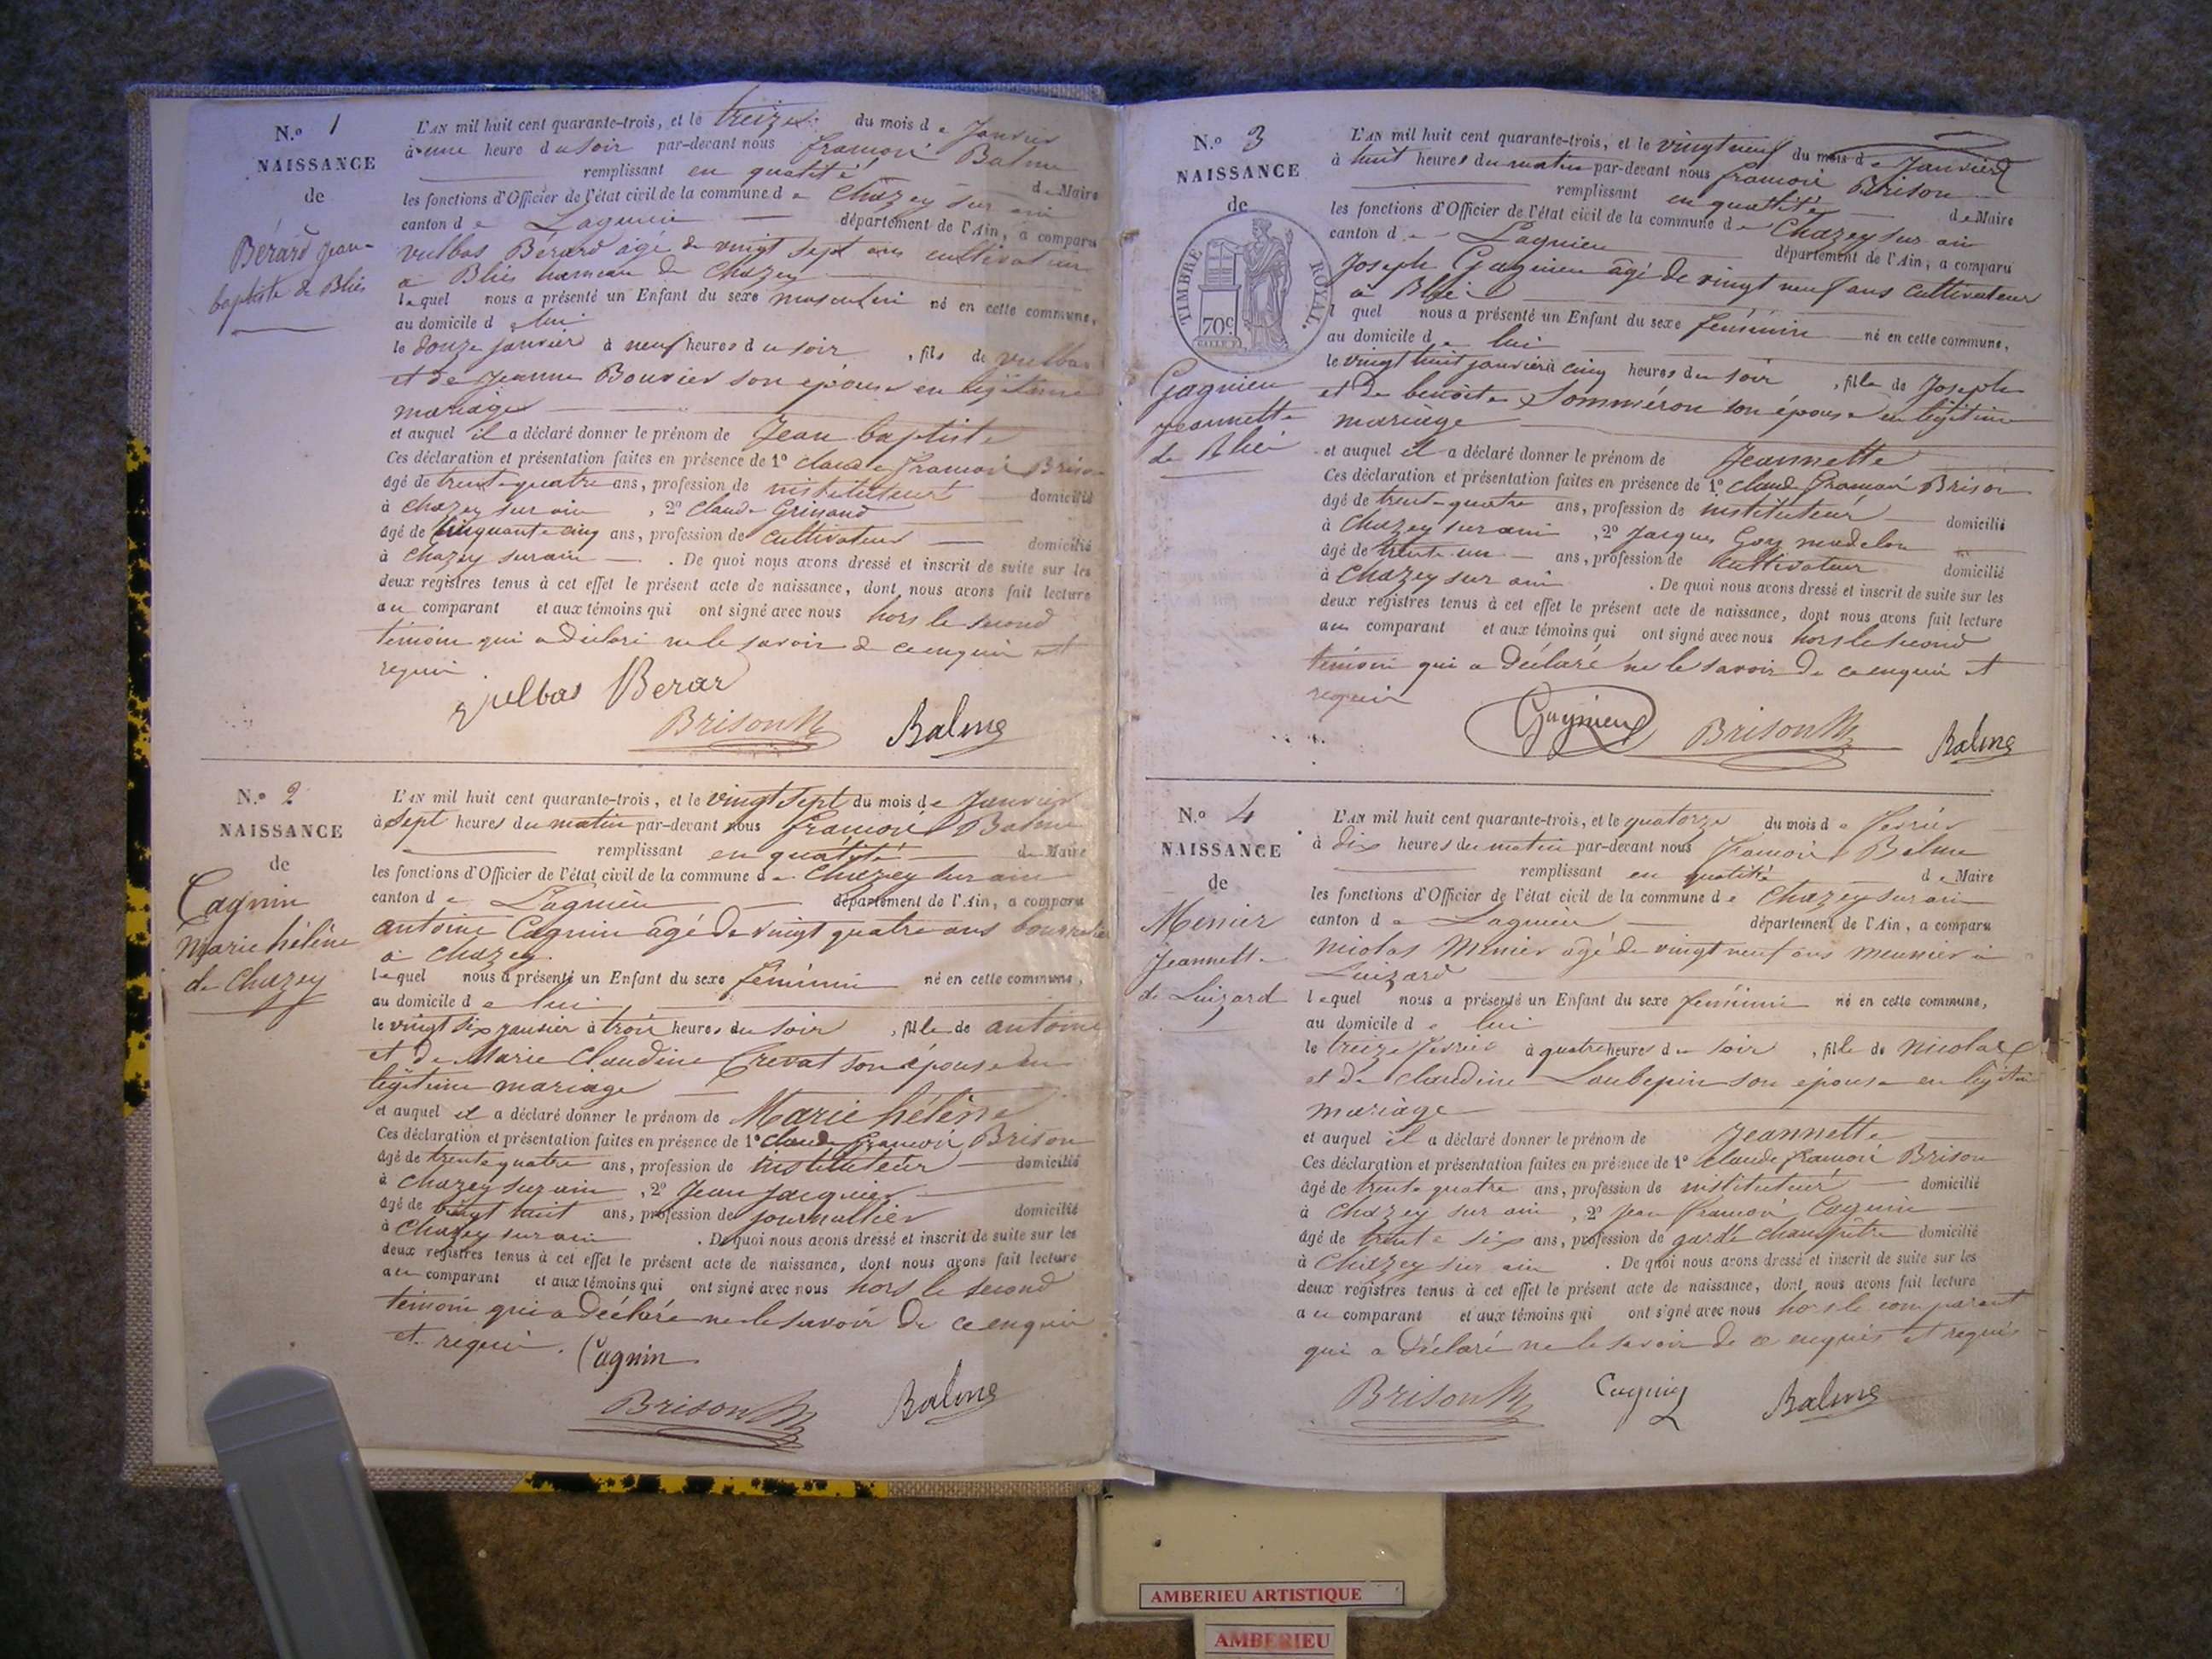 N.º 1
NAISSANCE
de
Bérard Jean
baptiste de Bliès
L'AN mil huit cent quarante-trois, et le treize du mois de Janvier
à une heure du soir par-devant nous françois Balme
remplissant en qualité de Maire
les fonctions d'Officier de l'état civil de la commune de Chazey sur ain
canton de Lagnieu département de l'Ain, a comparu
vulbas Bérard âgé de vingt sept ans cultivateur
à Bliès hameau de Chazey
lequel nous a présenté un Enfant du sexe masculin né en cette commune,
au domicile de lui
le douze janvier à neuf heures du soir, fils de vulbas
et de Jeanne Bouvier son épouse en légitime
mariage
et auquel il a déclaré donner le prénom de Jean baptiste
Ces déclaration et présentation faites en présence de 1º claude françois Brison
âgé de trente quatre ans, profession de instituteur domicilié
à chazey sur ain, 2º Claude Grinand
âgé de cinquante cinq ans, profession de cultivateur domicilié
à chazey sur ain. De quoi nous avons dressé et inscrit de suite sur les
deux registres tenus à cet effet le présent acte de naissance, dont nous avons fait lecture
au comparant et aux témoins qui ont signé avec nous hors le second
témoin qui a déclaré ne le savoir de ce enquis et
requis
vulbas Berar
Brison
Balme
N.º 2
NAISSANCE
de
Cagnin
Marie hélène
de Chazey
L'AN mil huit cent quarante-trois, et le vingt sept du mois de Janvier
à sept heures du matin par-devant nous françois Balme
remplissant en qualité de Maire
les fonctions d'Officier de l'état civil de la commune de Chazey sur ain
canton de Lagnieu département de l'Ain, a comparu
antoine Cagnin âgé de vingt quatre ans bourrelier
à chazey
lequel nous a présenté un Enfant du sexe féminin né en cette commune,
au domicile de lui
le vingt six janvier à trois heures du soir, fille de antoine
et de Marie Claudine Crevat son épouse en
légitime mariage
et auquel il a déclaré donner le prénom de Marie hélène
Ces déclaration et présentation faites en présence de 1º Claude françois Brison
âgé de trente quatre ans, profession de instituteur domicilié
à chazey sur ain, 2º Jean Jacquier
âgé de vingt huit ans, profession de journallier domicilié
à Chazey sur ain. De quoi nous avons dressé et inscrit de suite sur les
deux registres tenus à cet effet le présent acte de naissance, dont nous avons fait lecture
au comparant et aux témoins qui ont signé avec nous hors le second
témoin qui a déclaré ne le savoir de ce enquis
et requis.
Cagnin
Brison
Balme
N.º 3
NAISSANCE
de
TIMBRE ROYAL.
70c
Gagnieu
Jeannette
de Bliès
L'AN mil huit cent quarante-trois, et le vingt neuf du mois de Janvier
à huit heures du matin par-devant nous françois Brison
remplissant en qualité de Maire
les fonctions d'Officier de l'état civil de la commune de Chazey sur ain
canton de Lagnieu département de l'Ain, a comparu
Joseph Gagnieu âgé de vingt neuf ans cultivateur
à Bliès
lequel nous a présenté un Enfant du sexe féminin né en cette commune,
au domicile de lui
le vingt huit janvier à cinq heures du soir, fille de Joseph
et de benoite Somméron son épouse en légitime
mariage
et auquel il a déclaré donner le prénom de Jeannette
Ces déclaration et présentation faites en présence de 1º Claude françois Brison
âgé de trente quatre ans, profession de instituteur domicilié
à Chazey sur ain, 2º Jacques Goy madelon
âgé de trente un ans, profession de cultivateur domicilié
à Chazey sur ain. De quoi nous avons dressé et inscrit de suite sur les
deux registres tenus à cet effet le présent acte de naissance, dont nous avons fait lecture
au comparant et aux témoins qui ont signé avec nous hors le second
témoin qui a déclaré ne le savoir de ce enquis et
requis
Gagnieu
Brison
Balme
N.º 4
NAISSANCE
de
Menier
Jeannette
de Luizard
L'AN mil huit cent quarante-trois, et le quatorze du mois de février
à dix heures du matin par-devant nous françois Balme
remplissant en qualité de Maire
les fonctions d'Officier de l'état civil de la commune de Chazey sur ain
canton de Lagnieu département de l'Ain, a comparu
nicolas Menier âgé de vingt neuf ans meunier à
Luizard
lequel nous a présenté un Enfant du sexe féminin né en cette commune,
au domicile de lui
le treize février à quatre heures du soir, fille de nicolas
et de claudine Laubepin son épouse en légitime
mariage
et auquel il a déclaré donner le prénom de Jeannette
Ces déclaration et présentation faites en présence de 1º Claude françois Brison
âgé de trente quatre ans, profession de instituteur domicilié
à Chazey sur ain, 2º Jean françois Cagnin
âgé de trente six ans, profession de garde champêtre domicilié
à Chazey sur ain. De quoi nous avons dressé et inscrit de suite sur les
deux registres tenus à cet effet le présent acte de naissance, dont nous avons fait lecture
au comparant et aux témoins qui ont signé avec nous hors le comparant
qui a déclaré ne le savoir de ce enquis et requis
Brison
Cagnin
Balme
AMBERIEU ARTISTIQUE
AMBERIEU